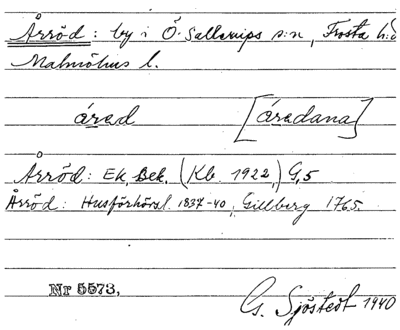 Årröd: by i Ö. Sallerups s:n, Frosta h:d
Malmöhus l.
árad [áradana]
Årröd: Ek. bek. (Kb. 1922,) G,5
Årröd: Husförhörsl. 1837-40, Gillberg 1765.
Nr 5573,
G. Sjöstedt 1940